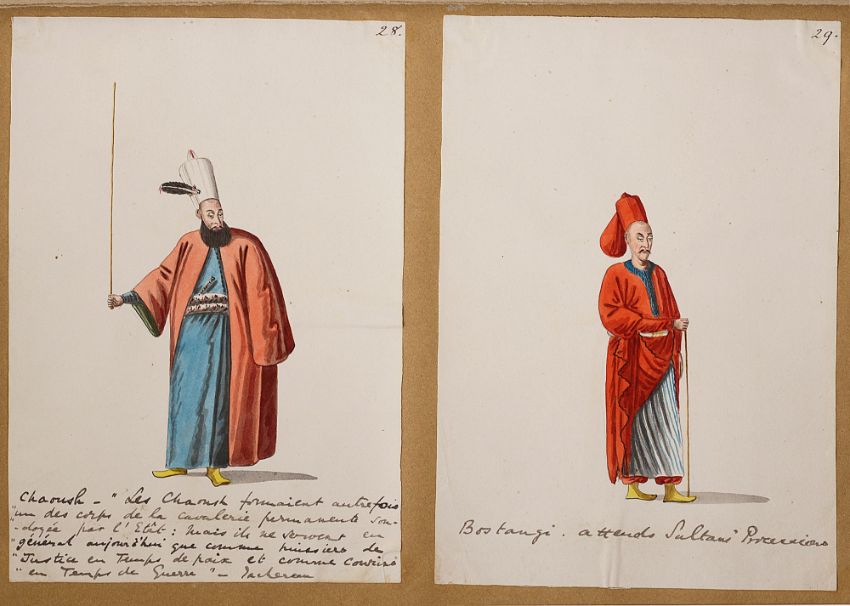 28.
Chaoush - "Les Chaoush formaient autrefois
"un des corps de la cavalerie permanente sou-
"-doyée par l'Etât: mais ils ne servent en
"général aujourd'hui que comme huissiers de
"Justice en Temps de paix et comme
"en Temps de Guerre" - Juchereau
29.
Bostangi. attends Sultans' Processions